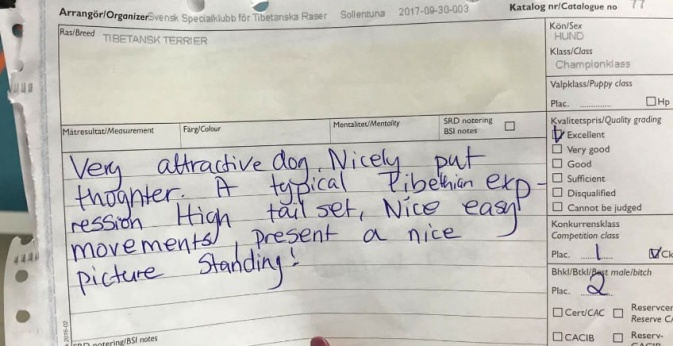 Arrangör/Organizer Svensk Specialklubb för Tibetanska Raser Sollentuna 2017-09-30-003 Katalog nr/Catalogue no 77
Ras/Breed TIBETANSK TERRIER
Kön/Sex
HUND
Klass/Class
Championklass
Valpklass/Puppy class
Plac. Hp
Mätresultat/Measurement Färg/Colour Mentalitet/Mentality SRD notering
BSI notes
Kvalitetspris/Quality grading
Excellent
Very good
Good
Sufficient
Disqualified
Cannot be judged
Very attractive dog. Nicely put
thoghter. A typical Tibethian exp-
ression High tail set, Nice easy
movements, present a nice
picture standing!
Konkurrensklass
Competition class
Plac. 1 Ck
Bhkl/Btkl/Best male/bitch
Plac. 2
Cert/CAC Reservcer
Reserve CA
CACIB Reserv-
SRD notering/BSI notes